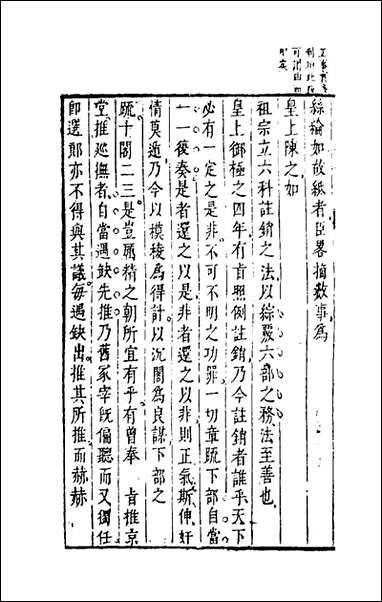 綸綍如故紙者臣畧摘數事爲
皇上陳之如
祖宗立六科註銷之法以綜覈六部之務法至善也
皇上御極之四年有旨照例註銷乃今註銷者誰乎天下
必有一定之是非不可不明之功罪一切章疏下部自當
一一復奏是者還之以是非者還之以非則正氣斯伸奸
情莫遁乃今以模稜爲得計以沉閣爲良謀下部之
疏十閣二三是豈厲精之朝所宜有乎有曾奉　旨推京
堂推巡撫者自當遇缺先推乃舊冢宰旣偏聽而又獨任
卽選郎亦不得與其議每遇缺出推其所推而赫赫